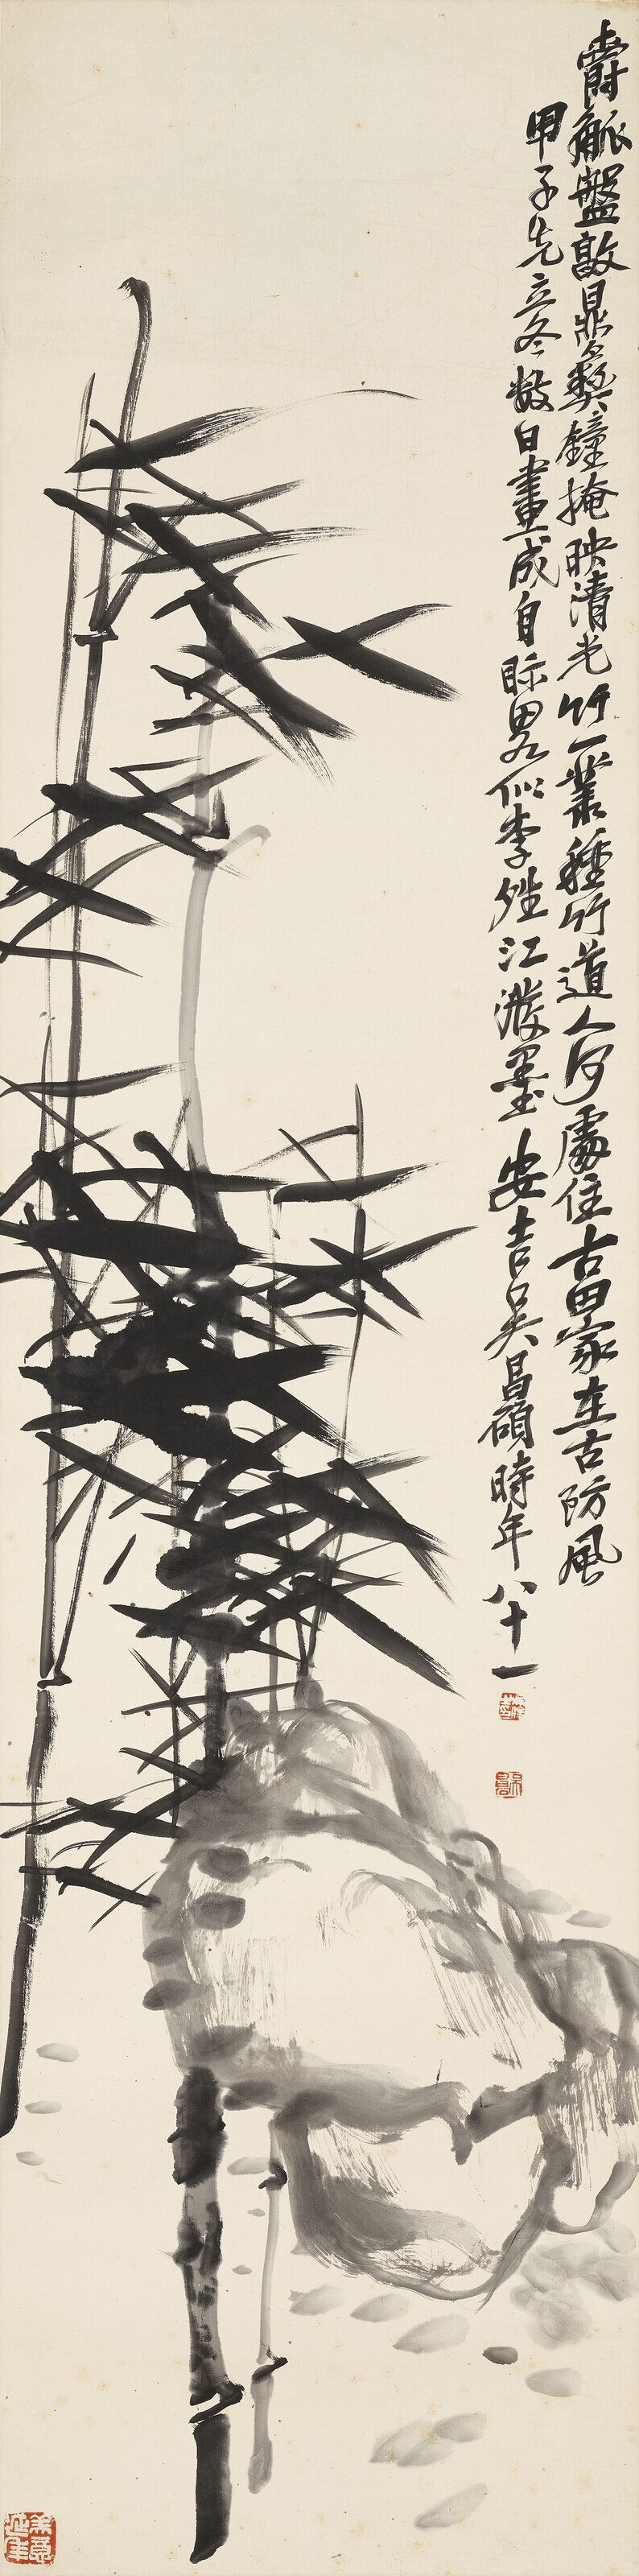 爵觚盤敦鼎彝鐘掩映清光竹一叢種竹道人何處住古田家在古防風
甲子先立冬數日畫成自眎略似李姓江潑墨安吉吳昌碩時年八十一
美意延年